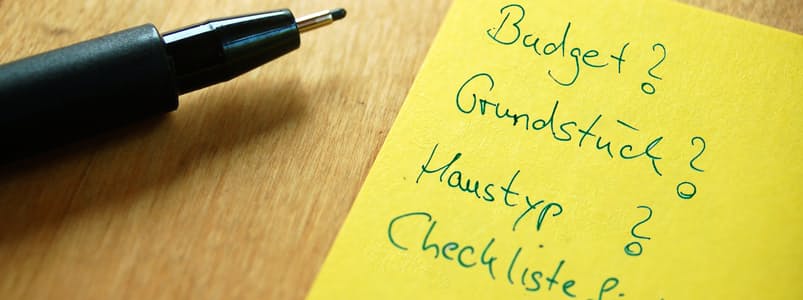 Budget?
Grundstück?
Haustyp ?
Checkliste